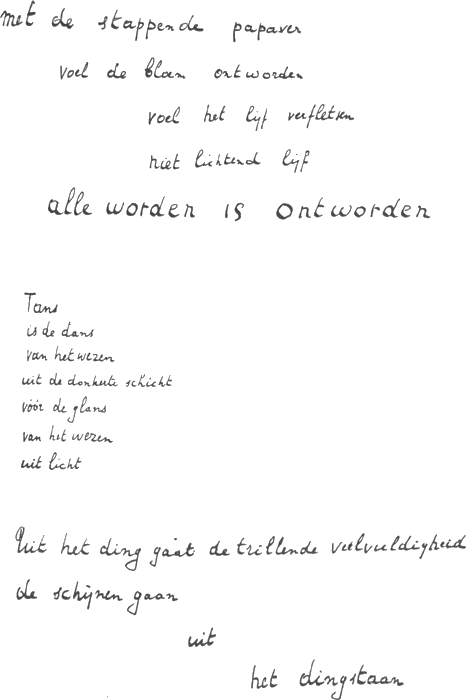 met de stappende papaver
voel de bloem ontworden
voel het lijf verfletsen
niet lichtend lijf
alle worden is ontworden
Tans
is de dans
van het wezen
uit de donkerte schicht
vóór de glans
van het wezen
uit licht
Uit het ding gaat de trillende veelvuldigheid
de schijnen gaan
uit
het dingstaan